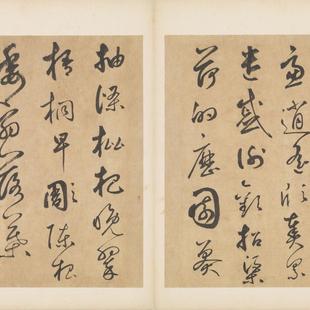 慮逍遙欣奏累
遣慼謝歡招渠
荷的歷園莽
抽條枇杷晚翠
梧桐早凋陳根
委翳落葉